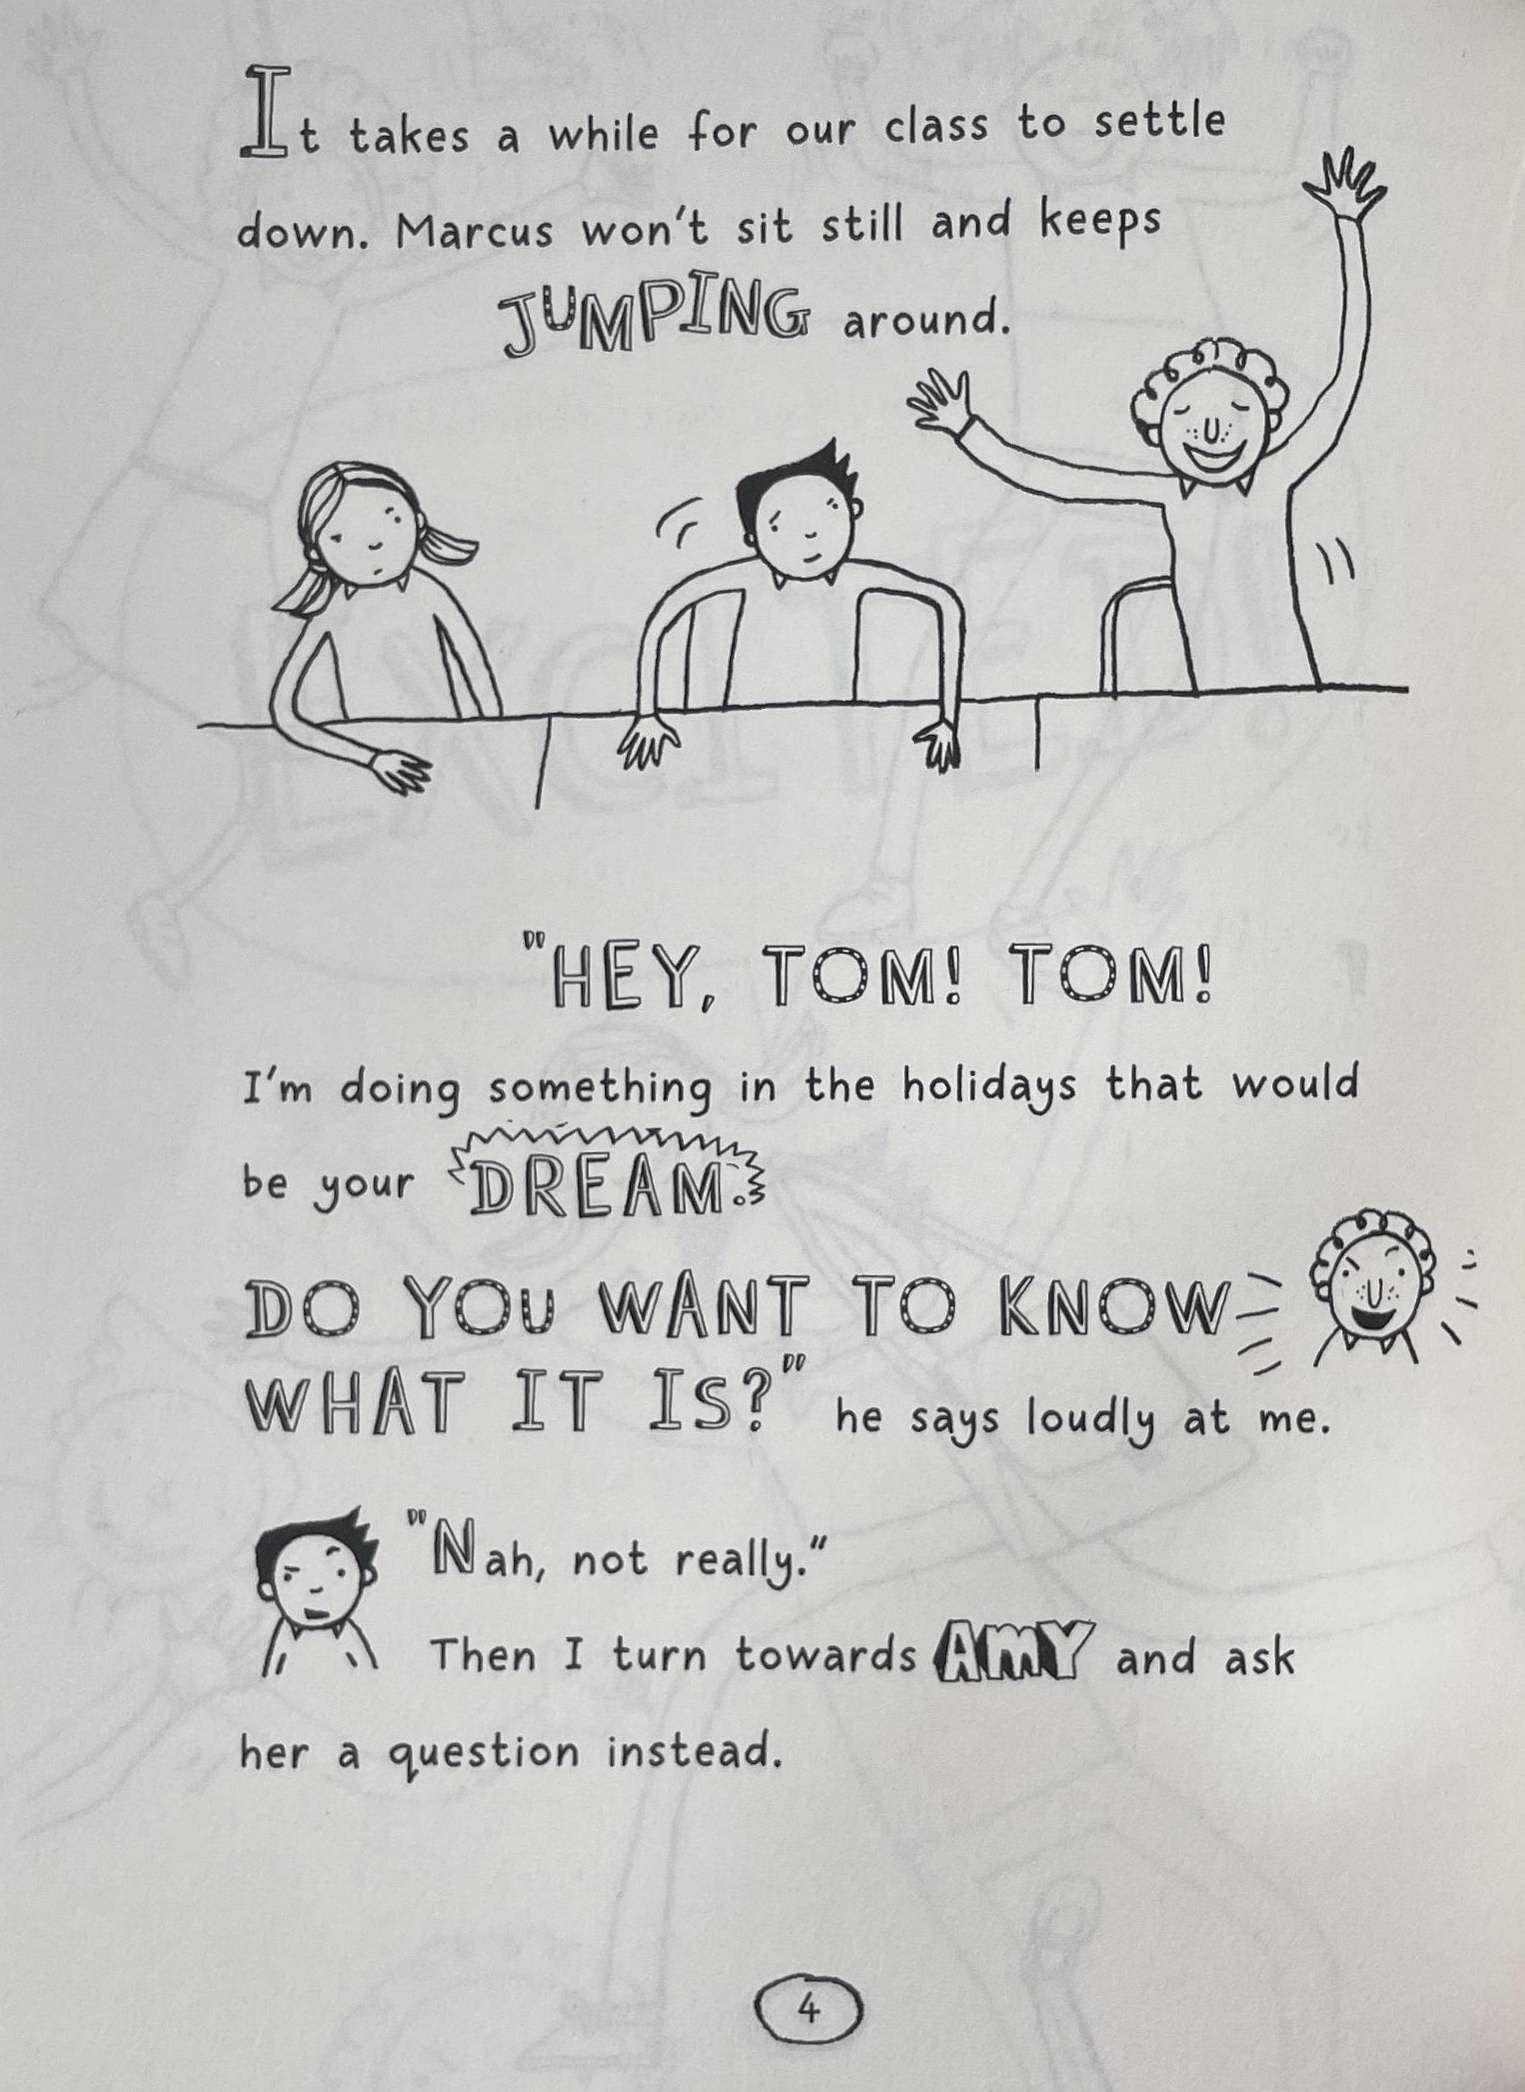 It takes a while for our class to settle
down. Marcus won't sit still and keeps
JUMPING around.
"HEY, TOM! TOM!
I'm doing something in the holidays that would
be your DREAM.
DO YOU WANT TO KNOW
WHAT IT IS?" he says loudly at me.
"Nah, not really."
Then I turn towards AMY and ask
her a question instead.
4